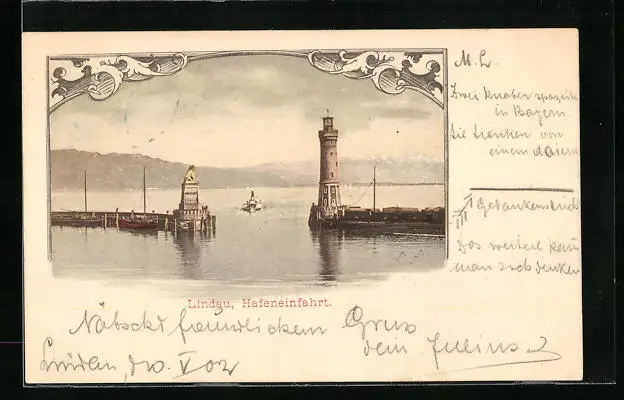 M. L.
Zwei Knaben spazirte
in Bayern
die tranken von
einem
Gedankenstrich
Das weitere kann
man sich denken
Lindau, Hafeneinfahrt.
Nebst freundlichem Gruss
dein Julius
Lindau, V 02